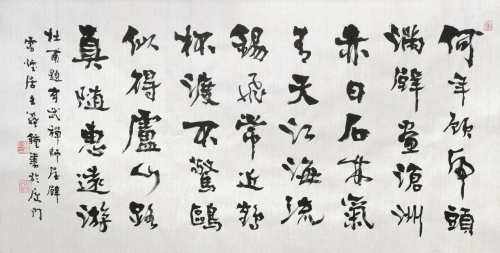 何年顧虎頭
滿壁畫滄洲
赤日石林氣
青天江海流
錫飛常近鶴
杯渡不驚鷗
似得盧山路
真隨惠遠游
杜甫題玄武禪師屋壁
居士 書於廈門